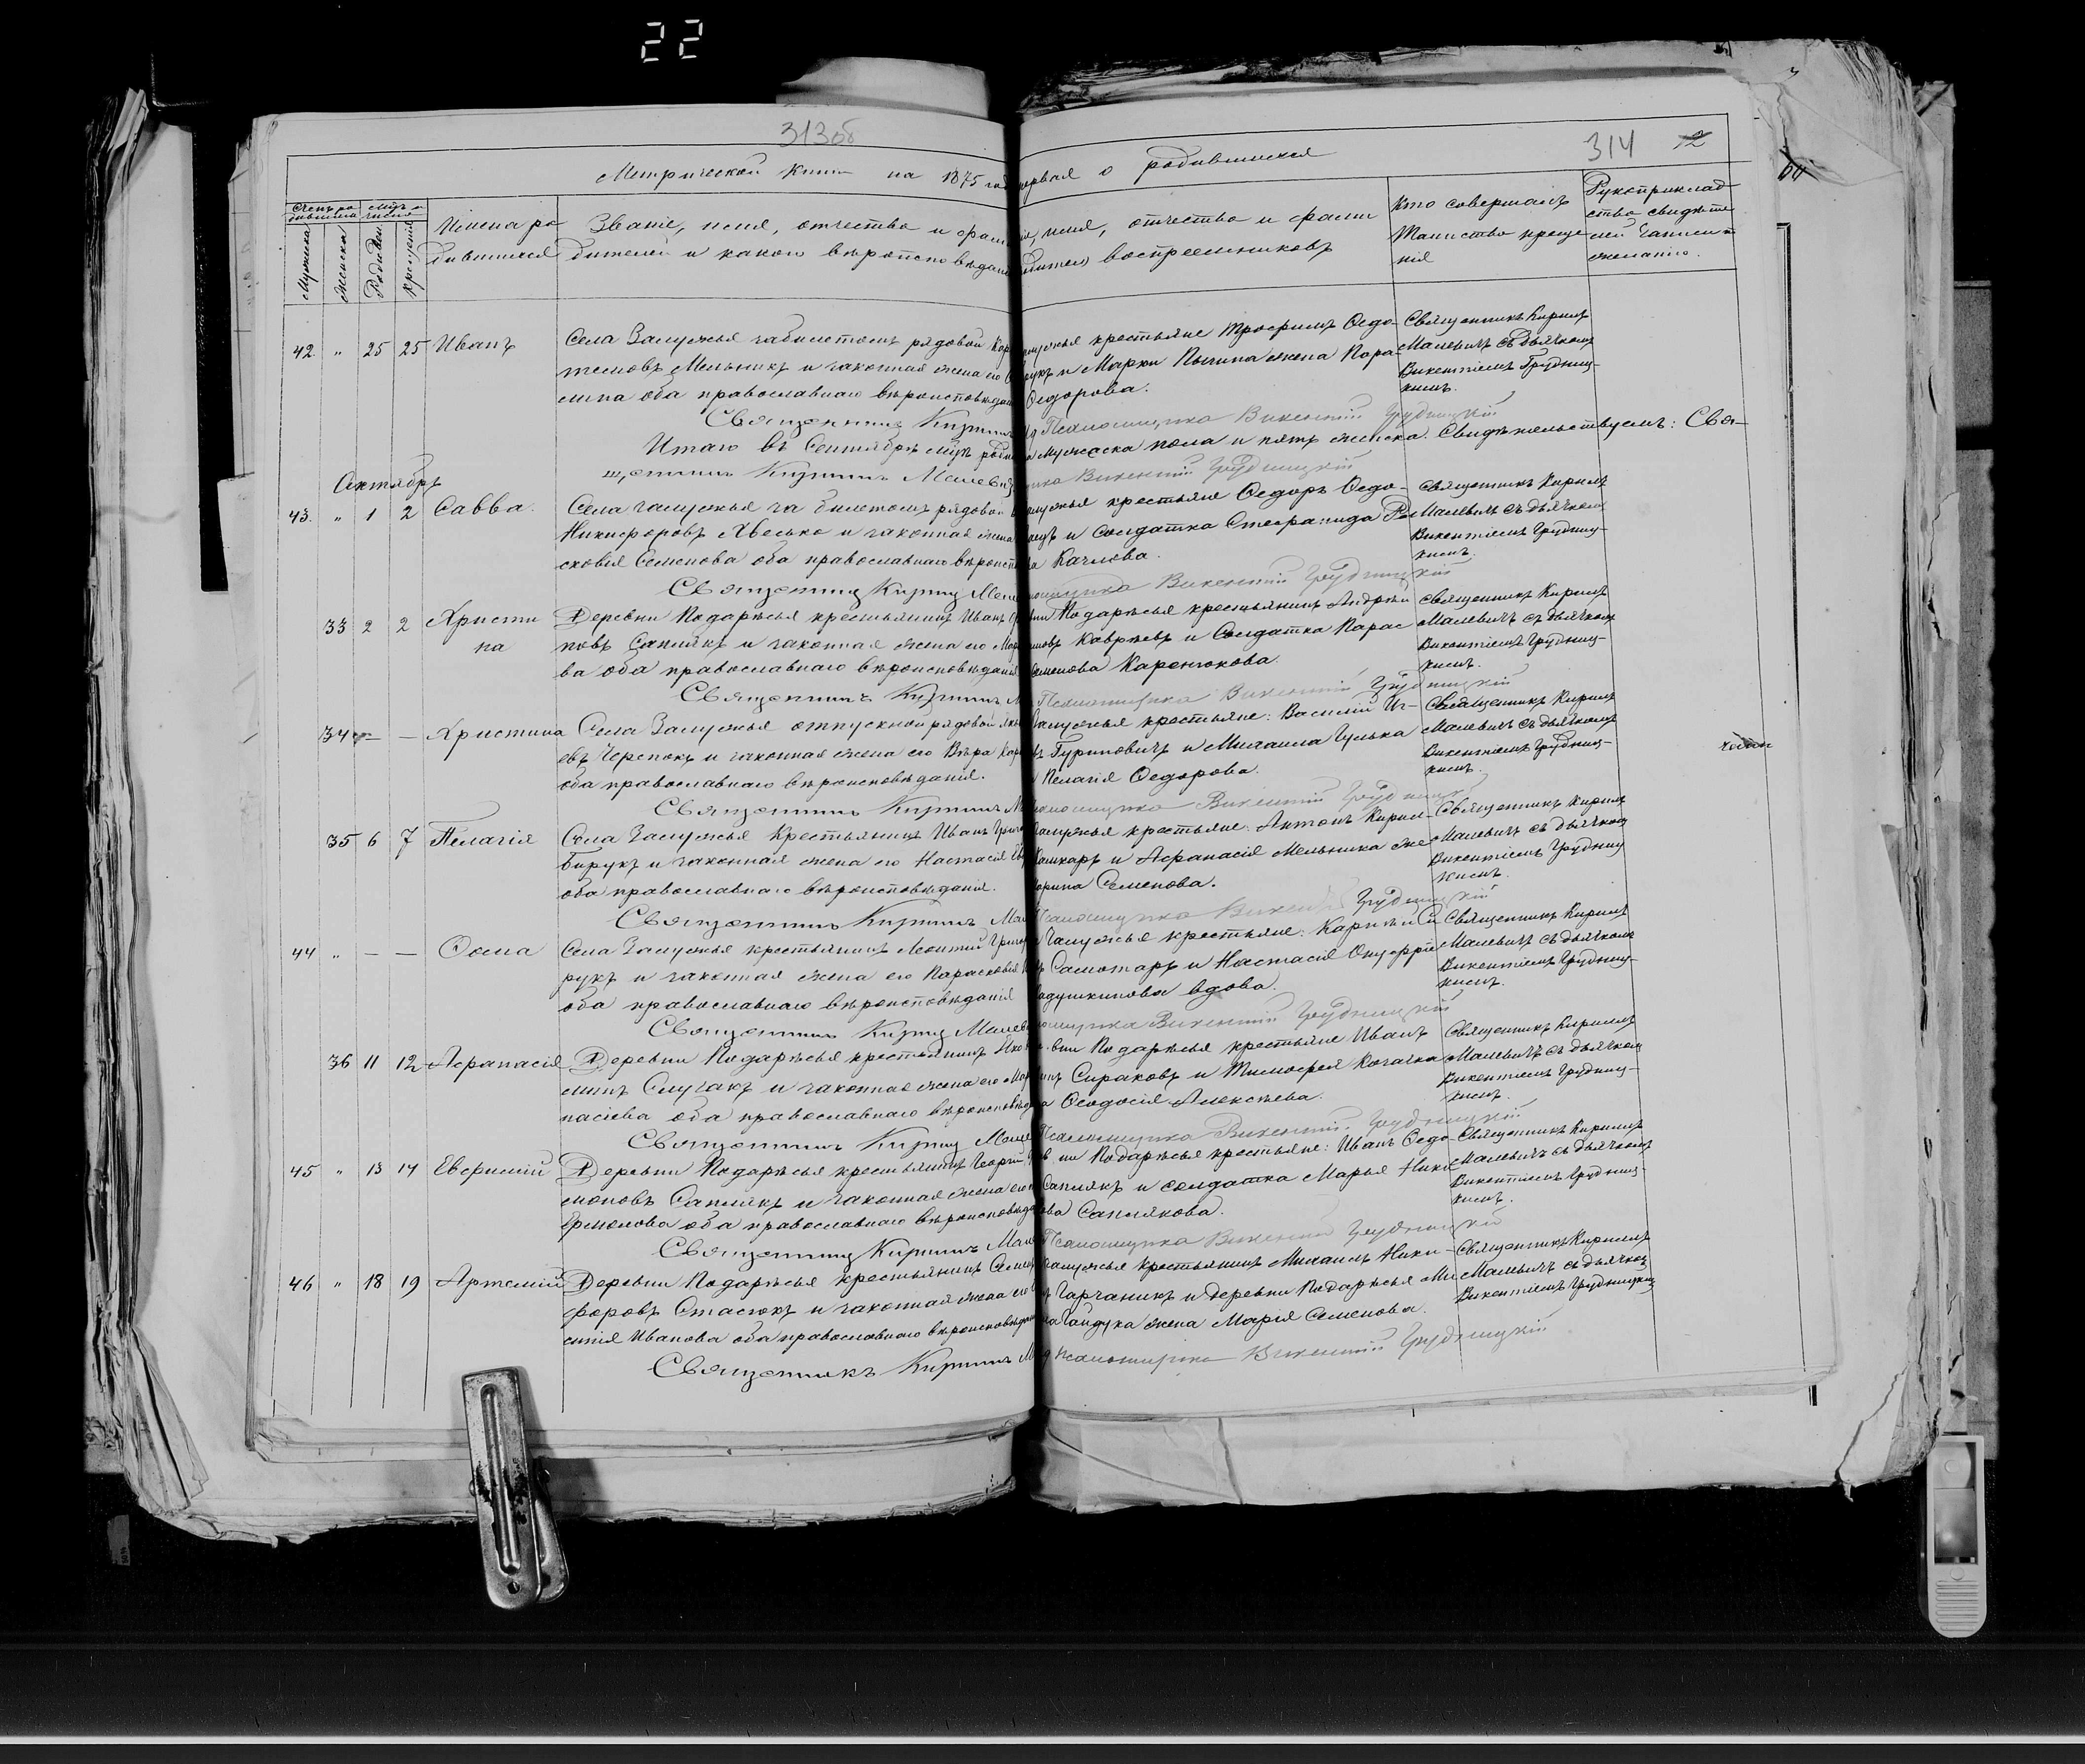 22
313об
314 12
Метрической книги на 1875 год первая о родившихся
Счетъ родившихся
Мужска
Женска
Рожден
Крещения
Имена родившихся
Званіе, имя, отчество и фами
дителей и какого вѣроисповѣдані
имя, отчество и фами
воспреемниковъ
Кто совершалъ
Таинство креще
нія
Рукоприклад
ство свидѣте
лей записи п
желанію.
42 " 25 25 Иванъ
Села Залужья забилетомъ рядовой
Мельникъ и законная жена его
оба православнаго вѣроисповѣдан
крестьяне Трофимъ Ѳедо-
и Марки Пылипа жена Пара-
Ѳедорова.
Священникъ Кирилъ
Малевичъ съ дьячкомъ
Викентіемъ Грудниц-
кимъ.
Священникъ Кирилъ
Псаломщика Викентій Грудницкій
Итого въ Сентябрѣ мѣц
мужеска пола и пять женска. Свидѣтельствуемъ: Свя-
щенникъ Кирилъ Малевичъ
Викентій Грудницкій
Октябрь
43. " 1 2 Савва.
Села Залужья за билетомъ рядовой
Никифоровъ Хвесько и законная жена
сковія Семенова оба православнаго вѣроисп
крестьяне Ѳедоръ Ѳедо-
и Солдатка Стефанида
Качлова.
Священникъ Кирилъ
Малевичъ съ дьячкомъ
Викентіемъ Грудниц-
кимъ.
Священникъ Кирилъ Мале
Викентій Грудницкій
33 2 2 Христи
на
Деревни Подарѣсья крестьянинъ Иванъ
новъ Сапликъ и законная жена его
ва оба православнаго вѣроисповѣданія
Подарѣсья крестьянинъ Андрей
и Солдатка Парас
Семенова Каренюкова.
Священникъ Кирилъ
Малевичъ съ дьячкомъ
Викентіемъ Грудниц-
кимъ.
Священникъ Кирилъ М
Псаломщика Викентій Грудницкій
34 — — Христина
Села Залужья отпускной рядовой
евъ Черепокъ и законная жена его Вѣра
оба православнаго вѣроисповѣданія.
Залужья крестьяне: Василій Иг-
Гуриновичъ и Михаила Гулька
Пелагія Ѳедорова.
Священникъ Кирилъ
Малевичъ съ дьячкомъ
Викентіемъ Грудниц-
кимъ.
Священникъ Кирилъ М
Викентій Грудницкій
35 6 7 Пелагія
Села Залужья Крестьянинъ Иванъ
Бирукъ и законная жена его Настасія
оба православнаго вѣроисповѣданія.
Залужья крестьяне: Антонъ Кирил-
и Афанасія Мельника же
Семенова.
Священникъ Кирилъ
Малевичъ съ дьячкомъ
Викентіемъ Грудниц
кимъ.
Священникъ Кирилъ Мал
Псаломщика Викентій Грудницкій
44 " — — Ѳома
Села Залужья крестьянинъ Леонтій
рукъ и законная жена его Парасковія
оба православнаго вѣроисповѣданія
Залужья крестьяне: Карнѣй
Самотаръ и Настасія Онуфріе
вдова.
Священникъ Кирилъ
Малевичъ съ дьячкомъ
Викентіемъ Грудниц-
кимъ.
Священникъ Кирилъ Малев
Викентій Грудницкій
36 11 12 Афанасія
Деревни Подарѣсья крестьянинъ
Случакъ и законная жена его
насіева оба православнаго вѣроисповѣд
Подарѣсья крестьяне Иванъ
Сираковъ и Тимофея Козачка
Ѳеодосія Алексѣева.
Священникъ Кирилъ
Малевичъ съ дьячкомъ
Викентіемъ Грудниц-
кимъ.
Священникъ Кирилъ Мале
Псаломщика Викентій Грудницкій
45 " 13 14 Евфимій
Деревни Подарѣсья крестьянинъ Георгій
моновъ Сапликъ и законная жена его
Ермолова оба православнаго вѣроисповѣда
Подарѣсья крестьяне: Иванъ Ѳедо-
и солдатка Марья Ники
Саплякова.
Священникъ Кирилъ
Малевичъ съ дьячкомъ
Викентіемъ Грудниц-
кимъ.
Священникъ Кирилъ Мале
Псаломщика Викентій Грудницкій
46 " 18 19 Артемій
Деревни Подарѣсья крестьянинъ
форовъ Стасюкъ и законная жена его
Иванова оба православнаго вѣроисповѣдан
Залужья крестьянинъ Михаилъ Ники-
Гарчаникъ и деревни Подарѣсья Ми
Гайдука жена Марія Семенова.
Священникъ Кирилъ
Малевичъ съ дьячком
Викентіемъ Грудницким
Священникъ Кирилъ М
псаломщика Викентій Грудницкій